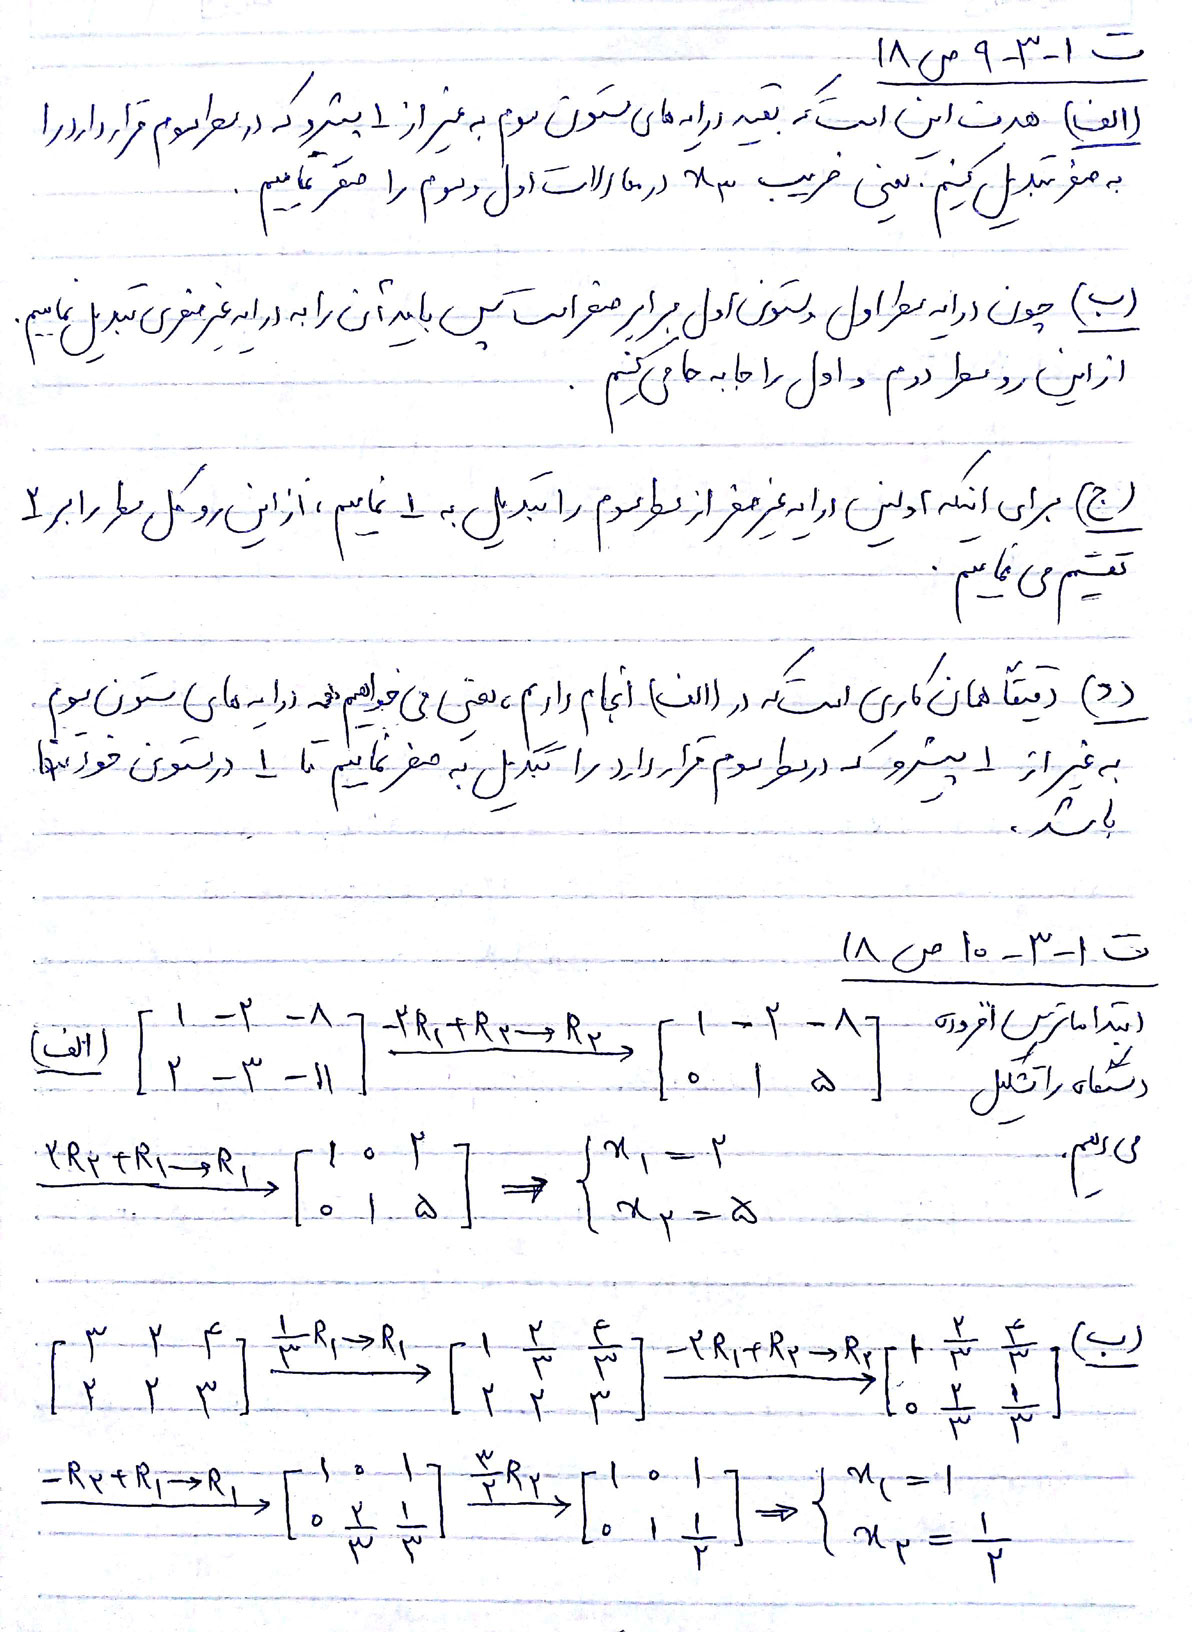 ت ۱-۳-۹ ص ۱۸
(الف) هدف این است که بقیه درایه های ستون سوم به غیر از ۱ پیشرو که در سطر سوم قرار دارد را
به صفر تبدیل کنیم. یعنی ضریب x۳ در معادلات اول و دوم را صفر نماییم.
(ب) چون درایه سطر اول و ستون اول برابر صفر است پس باید آن را به درایه غیر صفری تبدیل نماییم.
از این رو سطر دوم و اول را جا به جا می کنیم.
(ج) برای اینکه اولین درایه غیر صفر از سطر سوم را تبدیل به ۱ نماییم، از این رو کل سطر را بر ۲
تقسیم می نماییم.
(د) دقیقاً همان کاری است که در (الف) انجام دادیم، یعنی می خواهیم همه درایه های ستون سوم
به غیر از ۱ پیشرو که در سطر سوم قرار دارد را تبدیل به صفر نماییم تا ۱ در ستون خود تنها
باشد.
ت ۱-۳-۱۰ ص ۱۸
ابتدا ماتریس افزوده
دستگاه را تشکیل
می دهیم.
(الف) [۱ -۲ -۸ ; ۲ -۳ -۱۱] -۲R۱+R۲→R۲ [۱ -۲ -۸ ; ۰ ۱ ۵]
۲R۲+R۱→R۱ [۱ ۰ ۲ ; ۰ ۱ ۵] ⇒ { x۱=۲ ; x۲=۵
(ب) [۳ ۲ ۴ ; ۲ ۲ ۳] ۱/۳R۱→R۱ [۱ ۲/۳ ۴/۳ ; ۲ ۲ ۳] -۲R۱+R۲→R۲ [۱ ۲/۳ ۴/۳ ; ۰ ۲/۳ ۱/۳]
-R۲+R۱→R۱ [۱ ۰ ۱ ; ۰ ۲/۳ ۱/۳] ۳/۲R۲ [۱ ۰ ۱ ; ۰ ۱ ۱/۲] ⇒ { x۱=۱ ; x۲=۱/۲